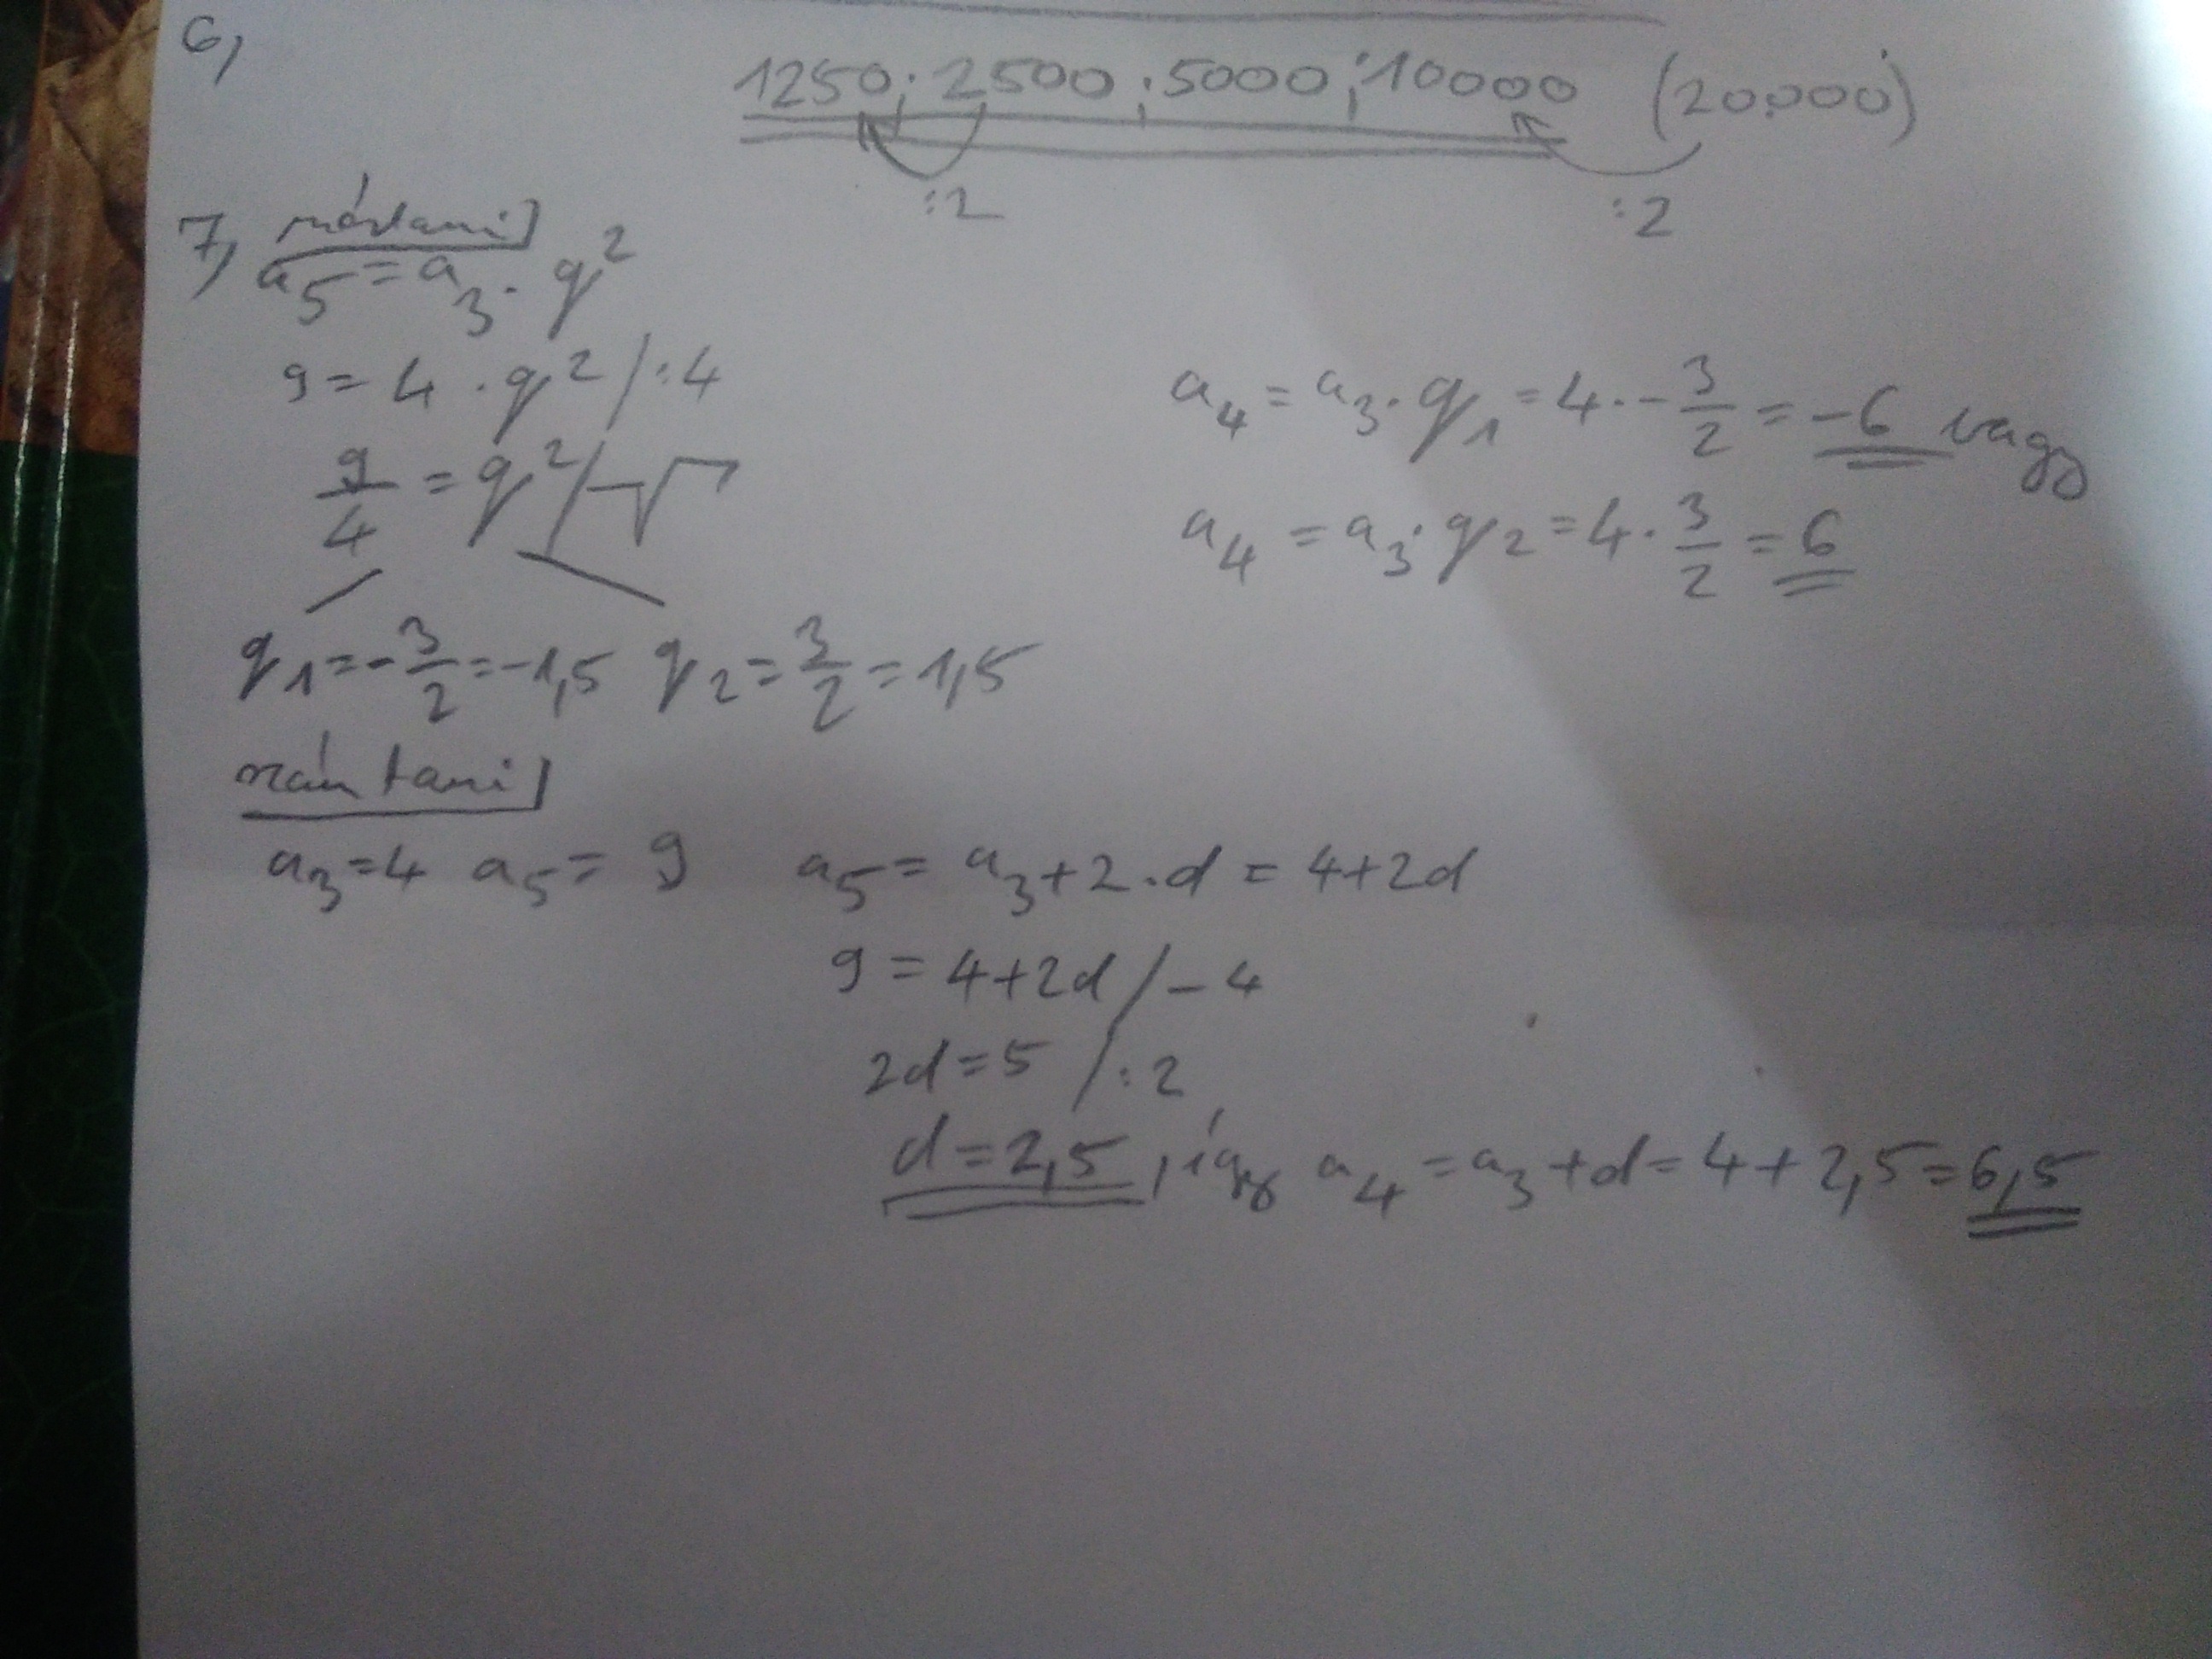 6,
1250; 2500; 5000; 10000 (20.000)
:2 :2
7, mértani
a₅ = a₃ · q²
9 = 4 · q² / :4
9/4 = q² / √
q₁ = -3/2 = -1,5 q₂ = 3/2 = 1,5
a₄ = a₃ · q₁ = 4 · -3/2 = -6 vagy
a₄ = a₃ · q₂ = 4 · 3/2 = 6
számtani
a₃ = 4 a₅ = 9 a₅ = a₃ + 2 · d = 4 + 2d
9 = 4 + 2d / -4
2d = 5 / :2
d = 2,5, így a₄ = a₃ + d = 4 + 2,5 = 6,5